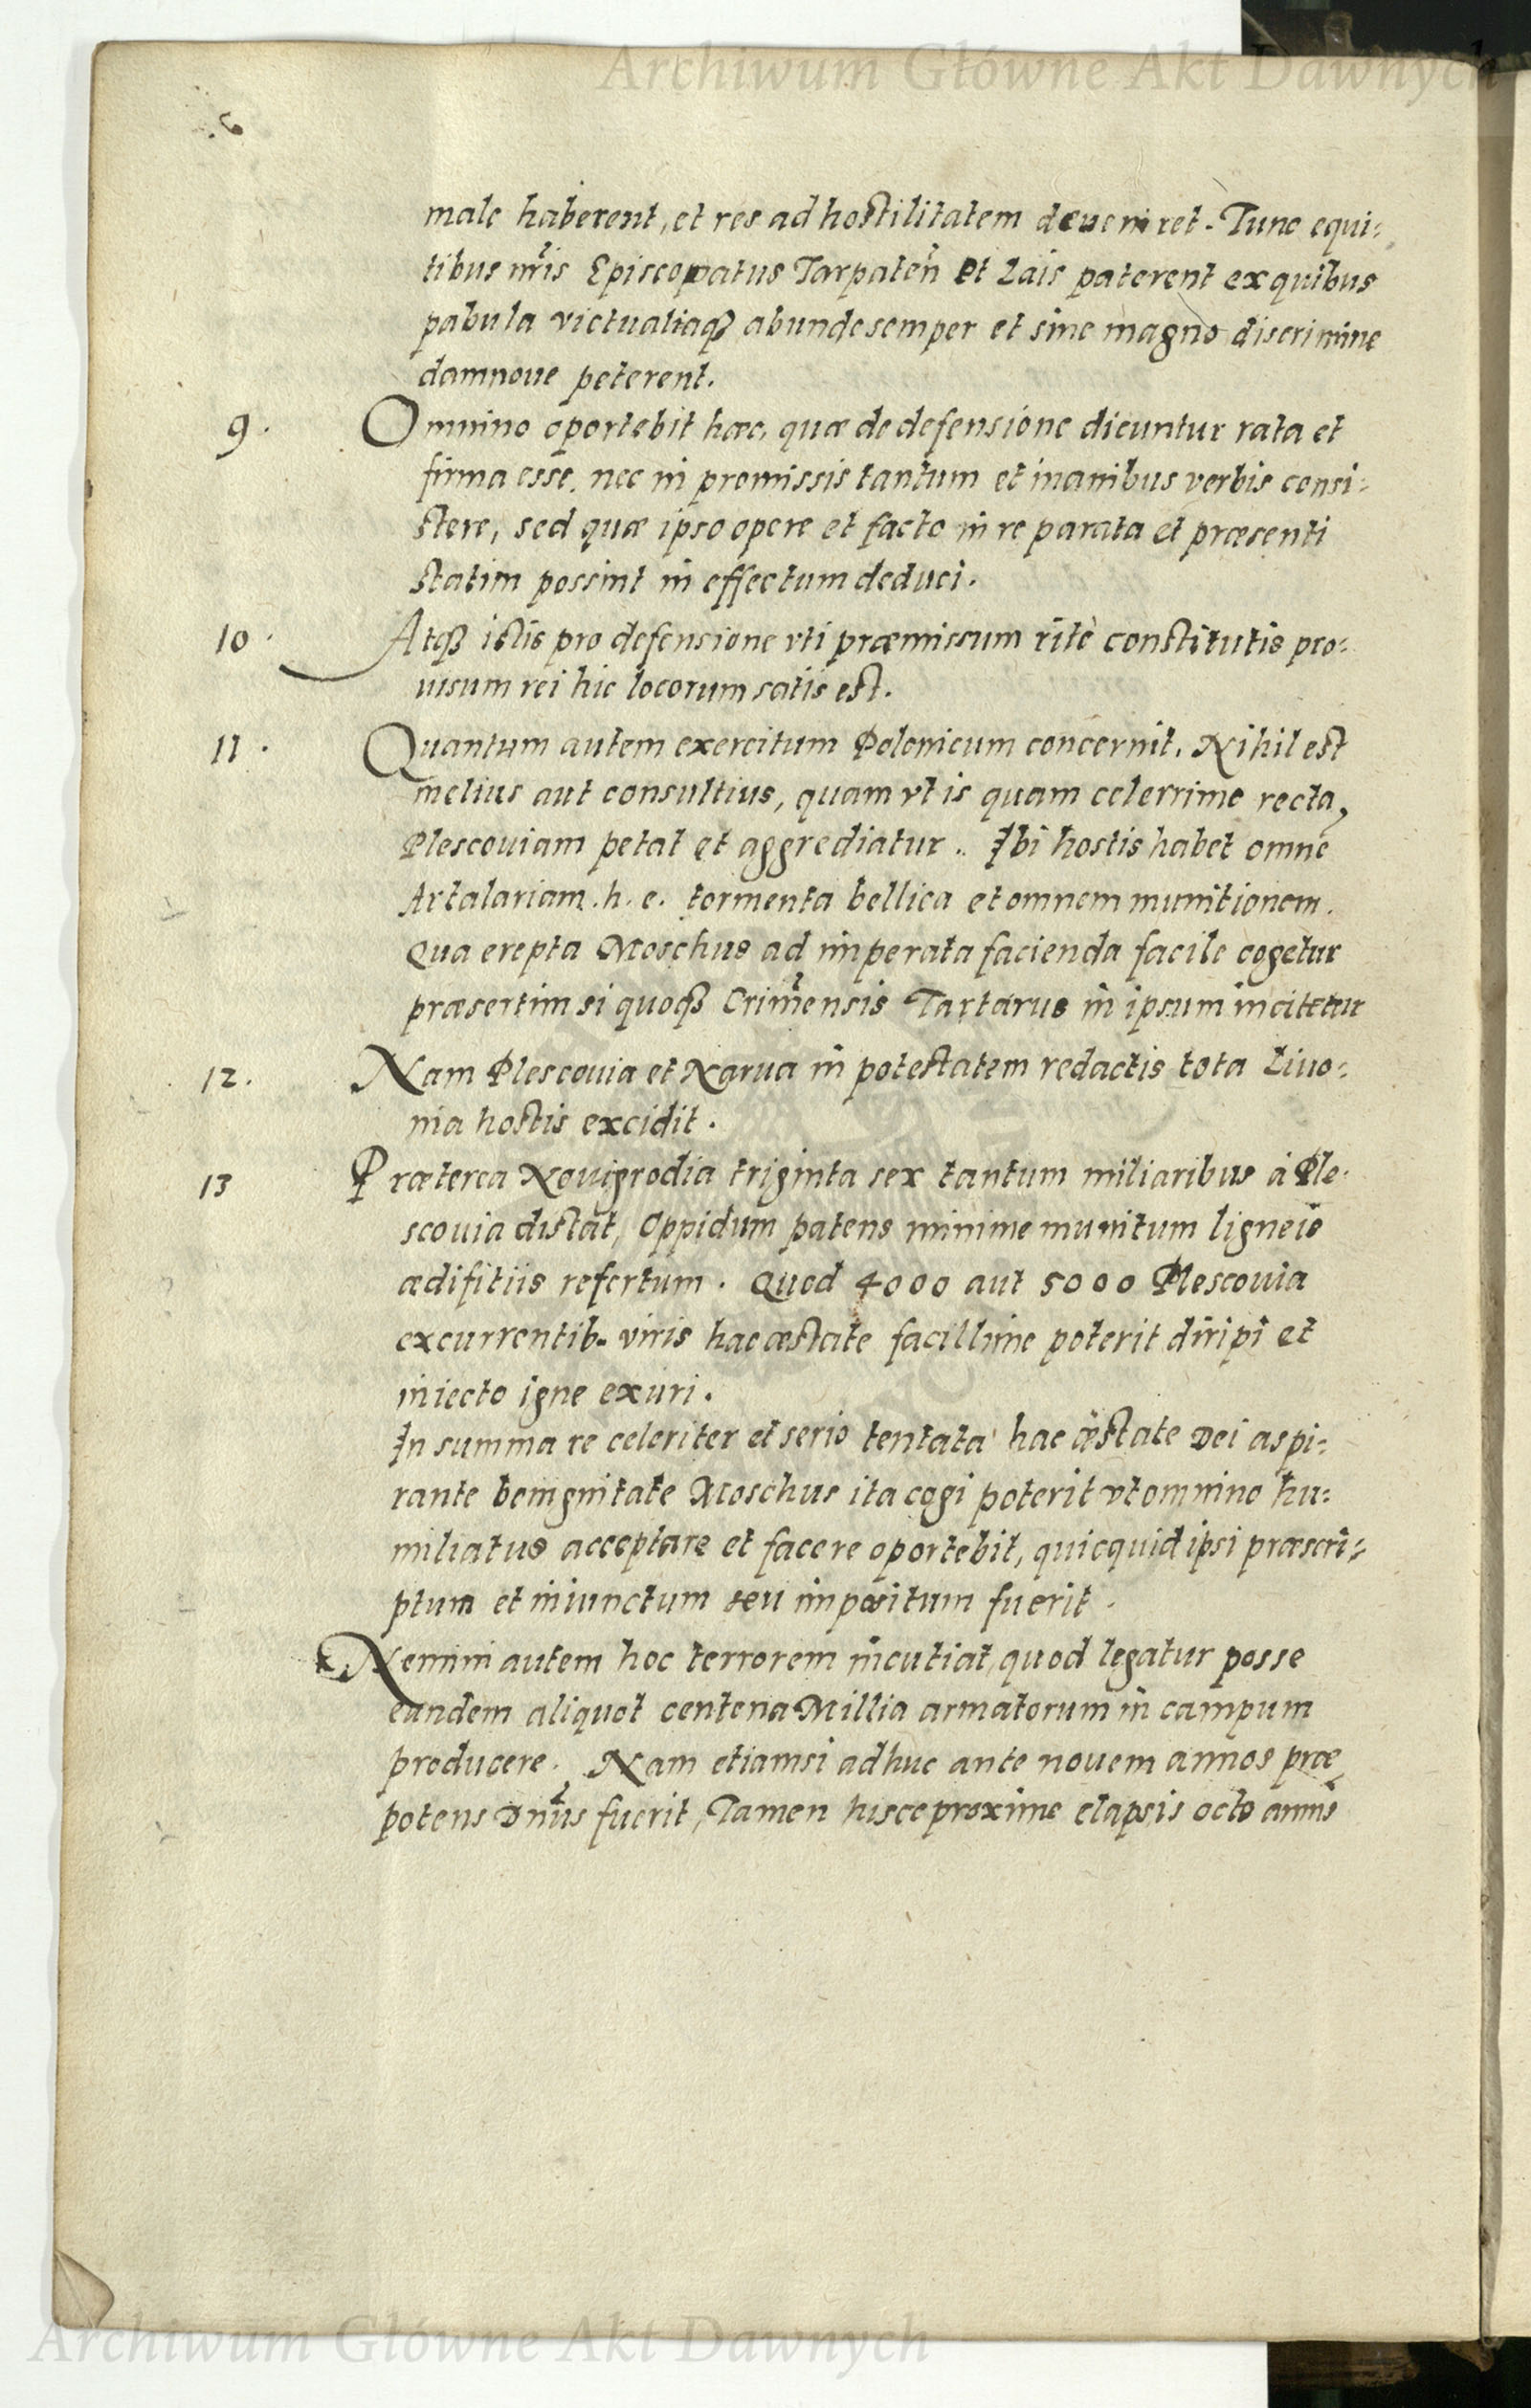 Archiwum Główne Akt Dawnych
.6
male haberent, et res ad hostilitatem deueniret. Tunc equi=
tibus nr̃is Episcopatus Tarpateñ et Lais paterent ex quibus
pabula victualiaqꝫ abunde semper et sine magno discrimine
damnoue peterent.
9. Omnino oportebit hæc, quæ de defensione dicuntur rata et
firma esse, nec in promissis tantum et inanibus verbis consi=
stere, sed quæ ipso opere et facto in re parata et præsenti
statim possint in effectum deduci.
10. Atqꝫ istis pro defensione vti præmissum ritè constitutis pro=
uisum rei hic locorum satis est.
11. Quantum autem exercitum Polonicum concernit, Nihil est
melius aut consultius, quam vt is quam celerrime recta,
Plescouiam petat et aggrediatur.. Ibi hostis habet omne
Artalariam. h. e. tormenta bellica et omnem munitionem.
Qua erepta Moschus ad imperata facienda facile cogetur
præsertim si quoqꝫ Crim̃ensis Tartarus in ipsum incitetur
12. Nam Plescouia et Narua in potestatem redactis tota Liuo=
nia hostis excidit.
13 Præterea Nouigrodia triginta sex tantum miliaribus à Ple=
scouia distat, Oppidum patens minime munitum ligneis
ædifitiis refertum. Quod 4000 aut 5000 Plescouia
excurrentib. viris hac æstate facillime poterit diripi et
iniecto igne exuri.
In summa re celeriter et serio tentata hac æstate Dei aspi=
rante benignitate Moschus ita cogi poterit vt omnino hu=
miliatus acceptare et facere oportebit, quicquid ipsi præscri=
ptum et iniunctum seu impositum fuerit.
Nemini autem hoc terrorem incutiat, quod legatur posse
eundem aliquot centena Millia armatorum in campum
producere. Nam etiamsi adhuc ante nouem annos præ
potens Dñus fuerit, Tamen hisce proxime elapsis octo annis
Archiwum Główne Akt Dawnych